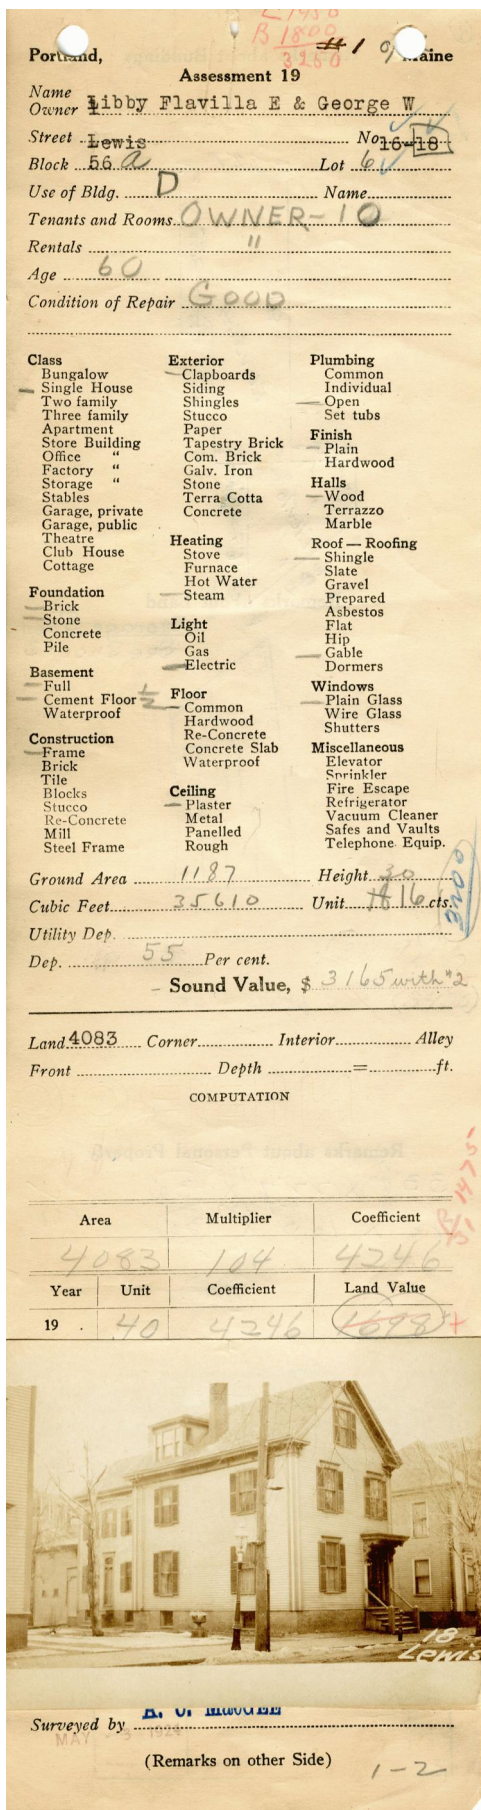 L 1450
B 1800
3250
#1 of
Portland, Maine
Assessment 19
Name
Owner Libby Flavilla E & George W
Street Lewis No 16-18
Block 56 a Lot 6
Use of Bldg. D Name
Tenants and Rooms OWNER-10
Rentals "
Age 60
Condition of Repair GOOD
Class
Bungalow
Single House
Two family
Three family
Apartment
Store Building
Office "
Factory "
Storage "
Stables
Garage, private
Garage, public
Theatre
Club House
Cottage
Foundation
Brick
Stone
Concrete
Pile
Basement
Full
Cement Floor 1/2
Waterproof
Construction
Frame
Brick
Tile
Blocks
Stucco
Re-Concrete
Mill
Steel Frame
Exterior
Clapboards
Siding
Shingles
Stucco
Paper
Tapestry Brick
Com. Brick
Galv. Iron
Stone
Terra Cotta
Concrete
Heating
Stove
Furnace
Hot Water
Steam
Light
Oil
Gas
Electric
Floor
Common
Hardwood
Re-Concrete
Concrete Slab
Waterproof
Ceiling
Plaster
Metal
Panelled
Rough
Plumbing
Common
Individual
Open
Set tubs
Finish
Plain
Hardwood
Halls
Wood
Terrazzo
Marble
Roof — Roofing
Shingle
Slate
Gravel
Prepared
Asbestos
Flat
Hip
Gable
Dormers
Windows
Plain Glass
Wire Glass
Shutters
Miscellaneous
Elevator
Sprinkler
Fire Escape
Refrigerator
Vacuum Cleaner
Safes and Vaults
Telephone Equip.
Ground Area 1187 Height 30
Cubic Feet 35610 Unit 16 cts.
3200
Utility Dep.
Dep. 55 Per cent.
Sound Value, $ 3165 with #2
Land 4083 Corner Interior Alley
Front Depth = ft.
COMPUTATION
1475
Area Multiplier Coefficient
4083 104 4246
Year Unit Coefficient Land Value
19 . 40 4246 1698 +
18
Lewis
Surveyed by
MAY 1924
(Remarks on other Side)
1-2